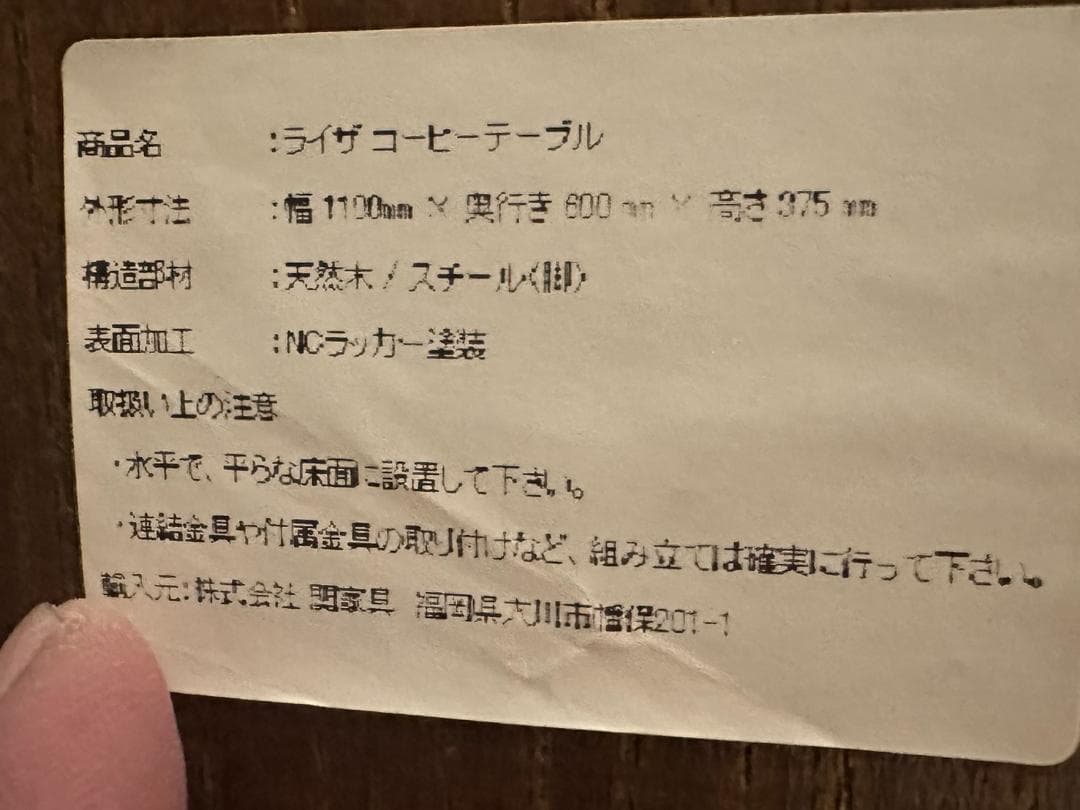 商品名 :ライザ コーヒーテーブル
外形寸法 :幅 1100mm × 奥行き 600 mm × 高さ 375 mm
構造部材 :天然木 / スチール(脚)
表面加工 :NCラッカー塗装
取扱い上の注意
・水平で、平らな床面に設置して下さい。
・連結金具や付属金具の取り付けなど、組み立ては確実に行って下さい。
輸入元:株式会社 関家具 福岡県大川市幡保201-1